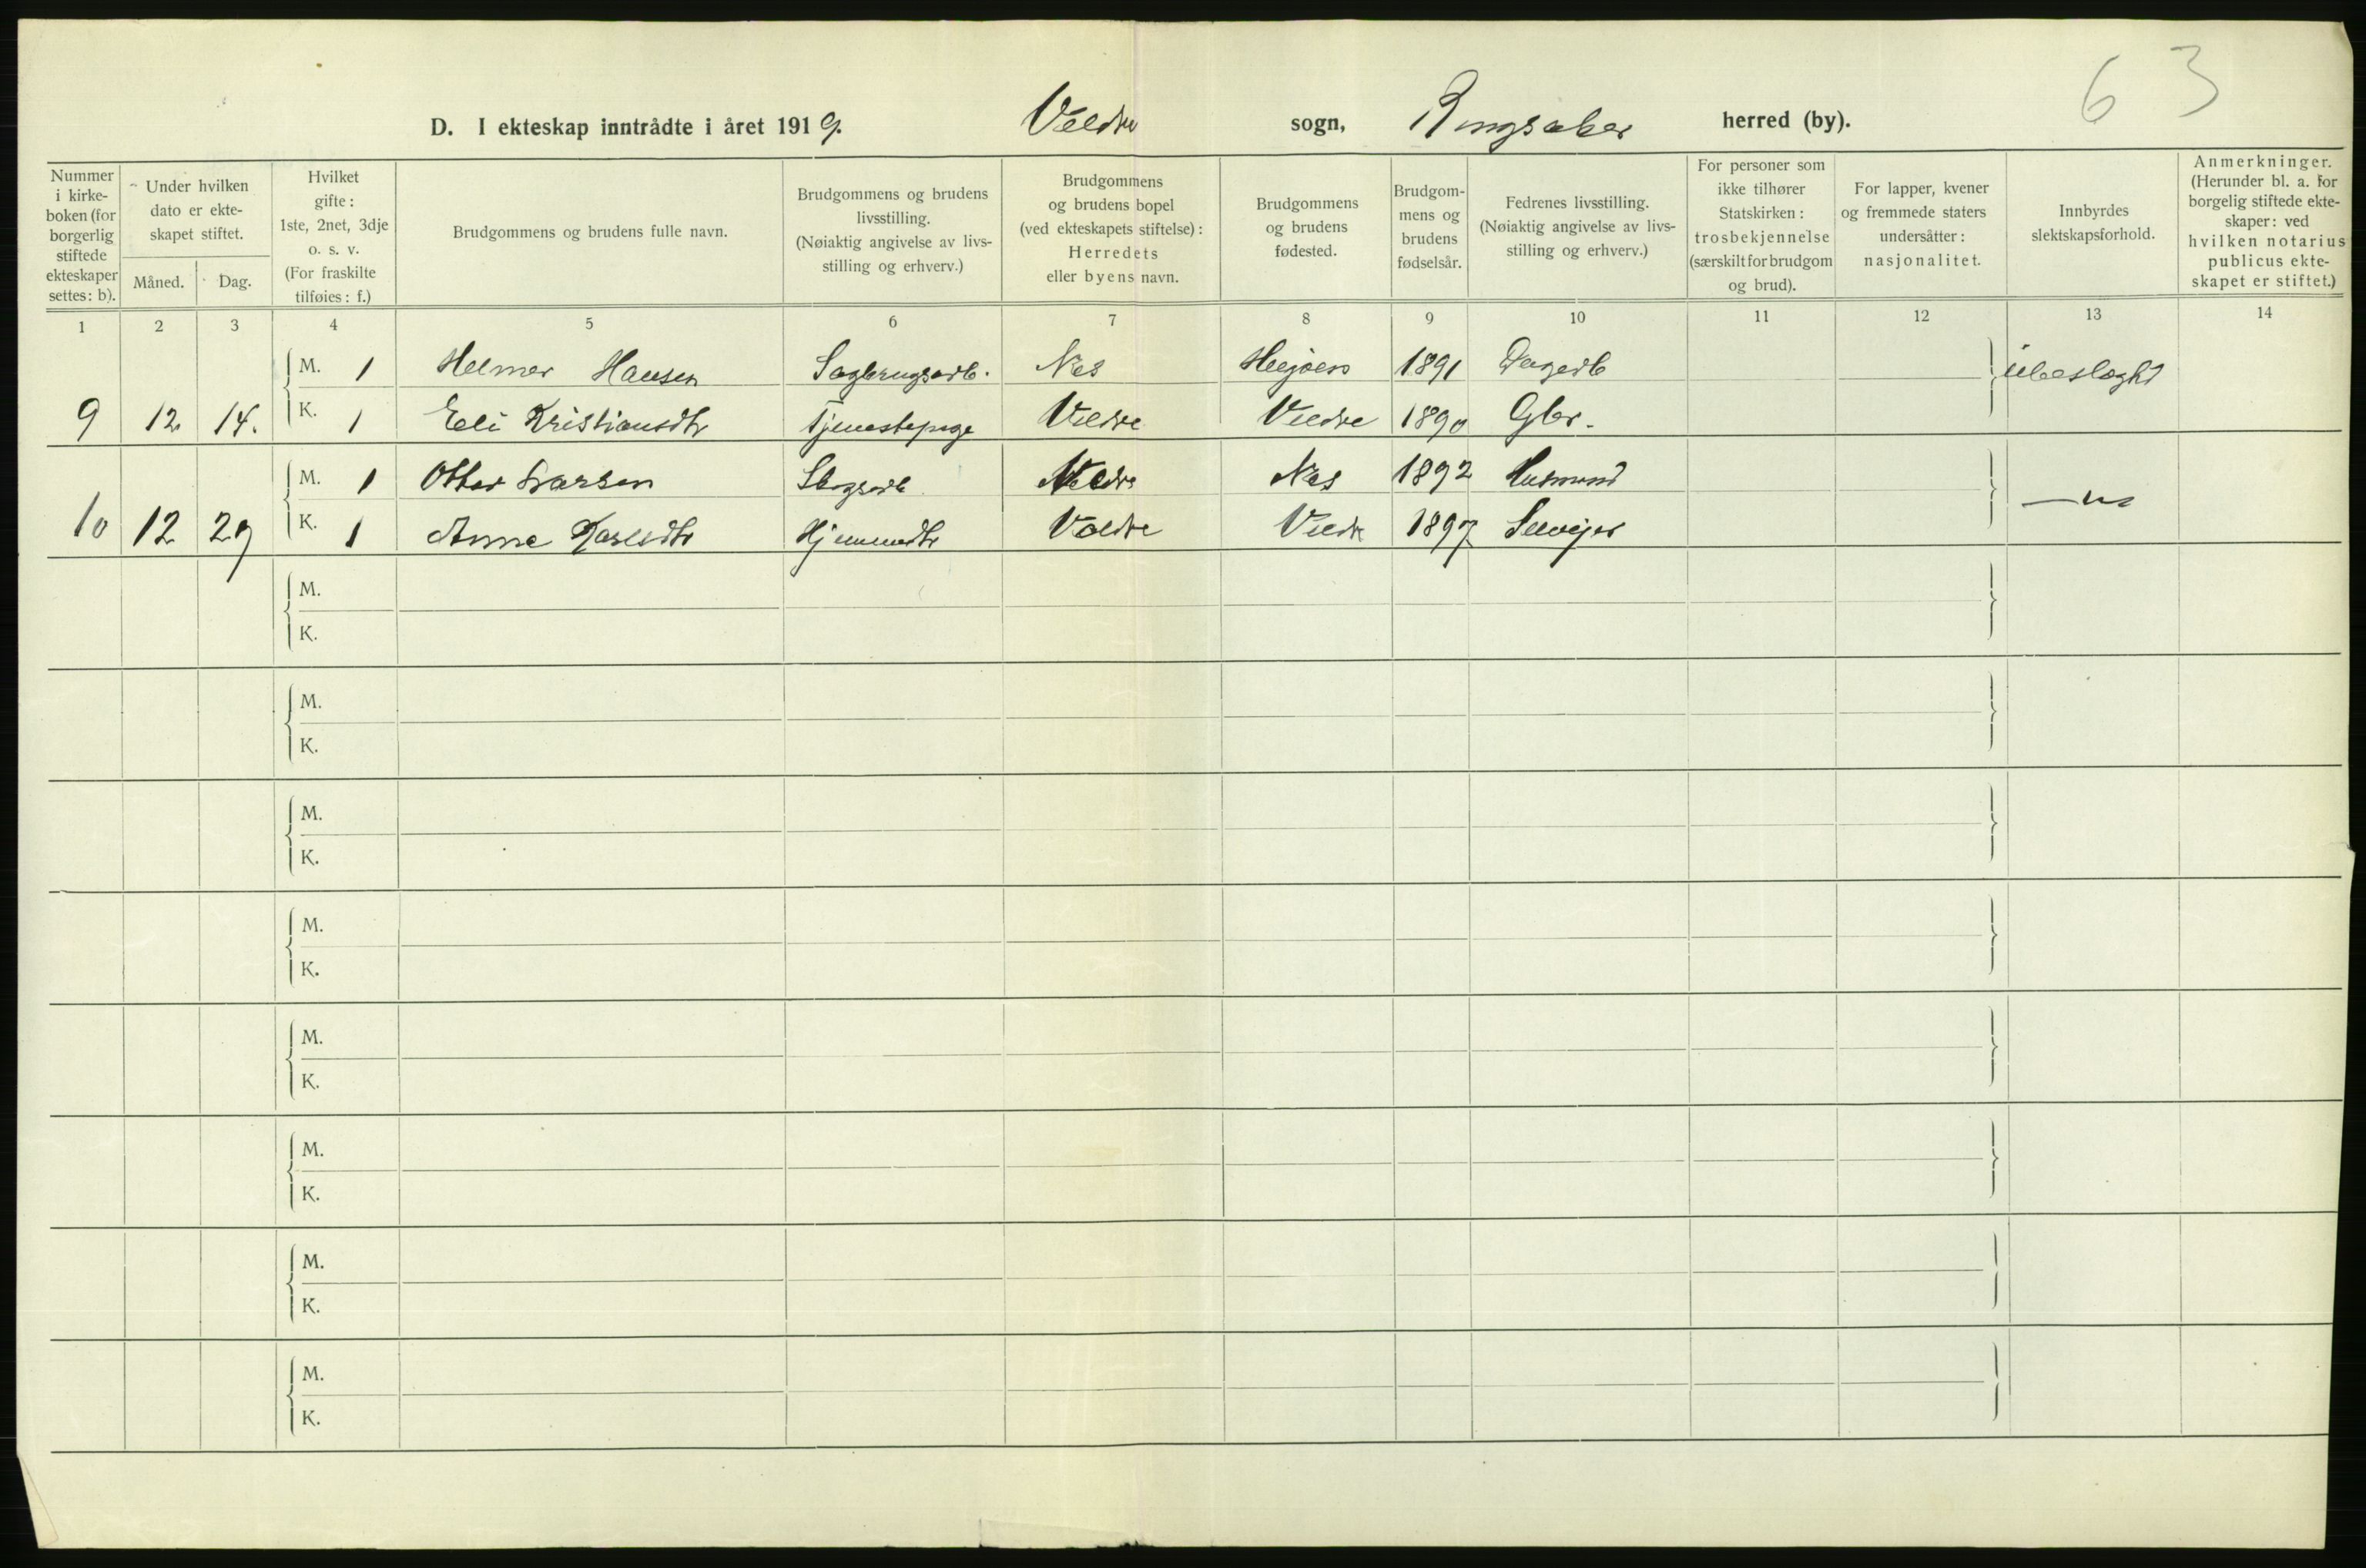 63
D. I ekteskap inntrådte i året 1919. Veldre sogn, Ringsaker herred (by).
Nummer i kirke- boken (for borgerlig stiftede ekteskaper settes: b).
Under hvilken dato er ekte- skapet stiftet.
Måned. Dag.
Hvilket gifte: 1ste, 2net, 3dje o. s. v. (For fraskilte tilføies: f.)
Brudgommens og brudens fulle navn.
Brudgommens og brudens livsstilling. (Nøiaktig angivelse av livs- stilling og erhverv.)
Brudgommens og brudens bopel (ved ekteskapets stiftelse): Herredets eller byens navn.
Brudgommens og brudens fødested.
Brudgom- mens og brudens fødselsår.
Fedrenes livsstilling. (Nøiaktig angivelse av livs- stilling og erhverv.)
For personer som ikke tilhører Statskirken: trosbekjennelse (særskilt for brudgom og brud).
For lapper, kvener og fremmede staters undersåtter: nasjonalitet.
Innbyrdes slektskapsforhold.
Anmerkninger. (Herunder bl. a. for borgelig stiftede ekte- skaper: ved hvilken notarius publicus ekte- skapet er stiftet.)
1 2 3 4 5 6 7 8 9 10 11 12 13 14
M. 1 Helmer Hansen Sagbrugsarb. Nes 1891 Dagarb ubeslægtet
9 12 14. K. 1 Eli Kristiansdtr Tjenestepige Veldre Veldre 1890 Gbr.
M. 1 Otter Larsen Skogsarb Veldre Nes 1892 Husmand
10 12 29 K. 1 Anna Karlsdtr Hjemmedtr Veldre Veldr 1897 Selvejer
M.
K.
M.
K.
M.
K.
M.
K.
M.
K.
M.
K.
M.
K.
M.
K.